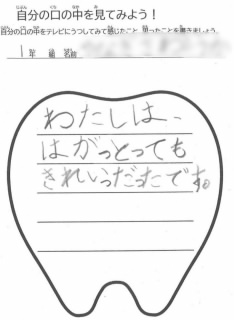 自分の口の中を見てみよう！
自分の口の中をテレビにうつしてみて感じたこと、思ったことを書きましょう。
1年 組 名前
わたしは、
はがっとっても
きれいっだったです。